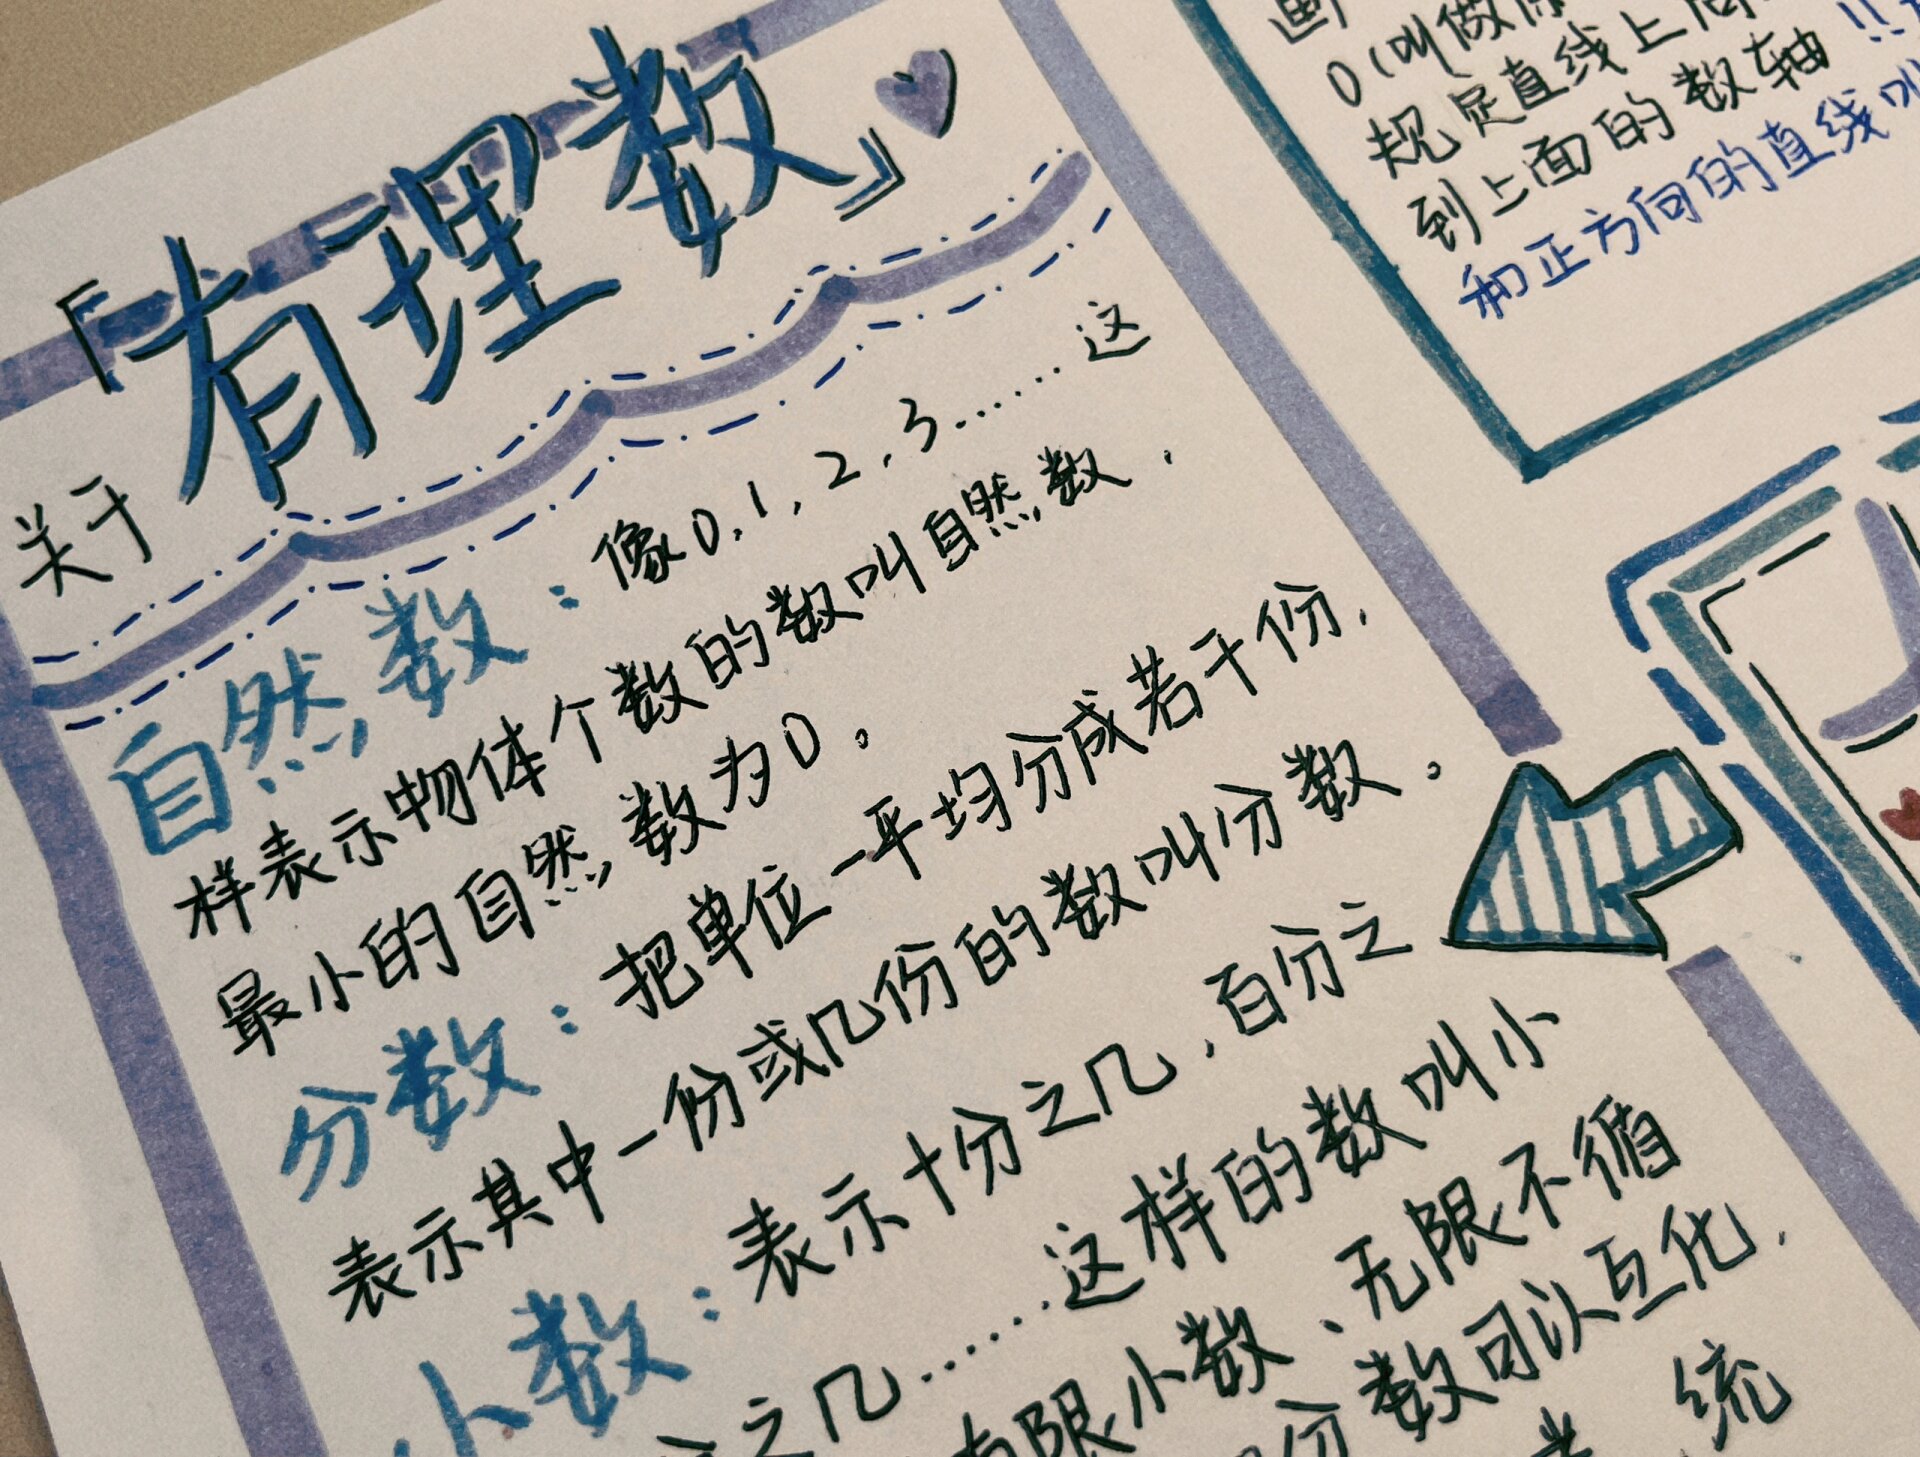 关于「有理数」
自然数：像0，1，2，3……这
样表示物体个数的数叫自然数，
最小的自然数为0。
分数：把单位一平均分成若干份，
表示其中一份或几份的数叫分数。
小数：表示十分之几，百分之
分之几……这样的数叫小
有限小数、无限不循
分数可以互化，
统
0（叫做原
规定直线上向
到上面的数轴!!
和正方向的直线叫